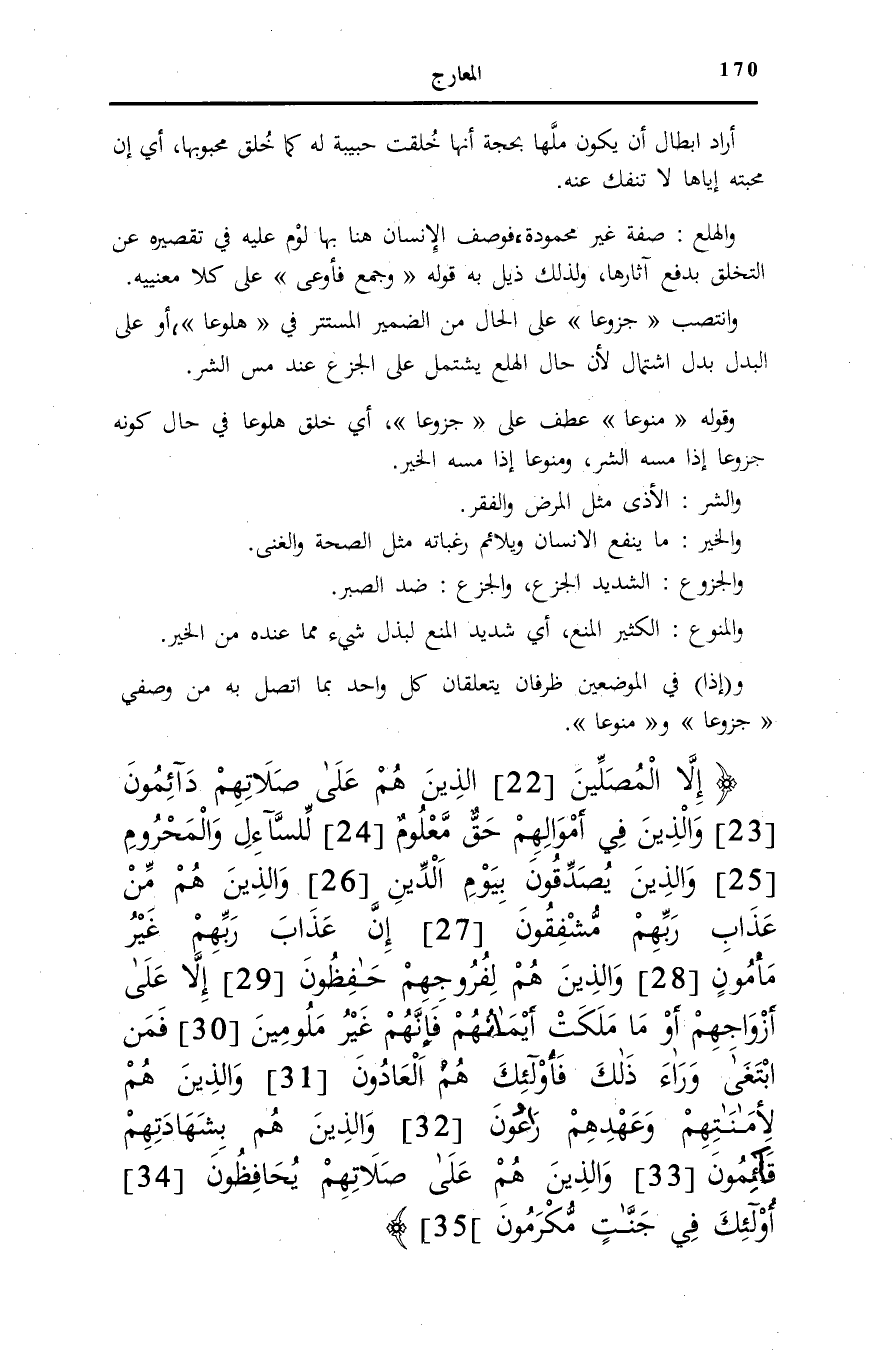 170
المعارج
أراد ابطال أن يكون ملَّها بحجة أنها خُلقت حبيبة له كما خُلق محبوبها، أي إن
محبته إياها لا تنفك عنه.
والهلع : صفة غير محمودة،فوصف الإنسان هنا بها لوْم عليه في تقصيره عن
التخلق بدفع آثارها، ولذلك ذيل به قوله « وجمع فأوعى » على كلا معنييه.
وانتصب « جزوعا » على الحال من الضمير المستتر في « هلوعا »،أو على
البدل بدل اشتمال لأن حال الهلع يشتمل على الجزع عند مس الشر.
وقوله « منوعا » عطف على « جزوعا »، أي خلق هلوعا في حال كونه
جزوعا إذا مسه الشر، ومنوعا إذا مسه الخير.
والشر : الأذى مثل المرض والفقر.
والخير : ما ينفع الانسان ويلائم رغباته مثل الصحة والغنى.
والجزوع : الشديد الجزع، والجزع : ضد الصبر.
والمنوع : الكثير المنع، أي شديد المنع لبذل شيء مما عنده من الخير.
و(إذا) في الموضعين ظرفان يتعلقان كل واحد بما اتصل به من وصفي
« جزوعا » و« منوعا ».
﴿ إِلَّا الْمُصَلِّينَ [22] الذِينَ هُمْ عَلَىٰ صَلَاتِهِمْ دَآئِمُونَ
[23] وَالْذِينَ فِي أَمْوَالِهِمْ حَقٌّ مَّعْلُومٌ [24] لِّلسَّآءِلِ وَالْمَحْرُومِ
[25] وَالذِينَ يُصَدِّقُونَ بِيَوْمِ الْدِّينِ [26] وَالذِينَ هُمْ مِّنْ
عَذَابِ رَبِّهِمْ مُّشْفِقُونَ [27] إِنَّ عَذَابَ رَبِّهِمْ غَيْرُ
مَأْمُونٍ [28] وَالذِينَ هُمْ لِفُرُوجِهِمْ حَـٰفِظُونَ [29] إِلَّا عَلَىٰ
أَزْوَاجِهِمْ أَوْ مَا مَلَكَتْ أَيْمَـٰنُهُمْ فَإِنَّهُمْ غَيْرُ مَلُومِينَ [30] فَمَن
ابْتَغَىٰ وَرَاءَ ذَٰلِكَ فَأُوْلَٰٓئِكَ هُمُ الْعَادُونَ [31] وَالذِينَ هُمْ
لِأَمَـٰنَـٰتِهِمْ وَعَهْدِهِمْ رَاعُونَ [32] وَالذِينَ هُم بِشَهَادَتِهِمْ
قَآئِمُونَ [33] وَالذِينَ هُمْ عَلَىٰ صَلَاتِهِمْ يُحَافِظُونَ [34]
أُوْلَٰٓئِكَ فِي جَنَّـٰتٍ مُّكْرَمُونَ ]35] ﴾